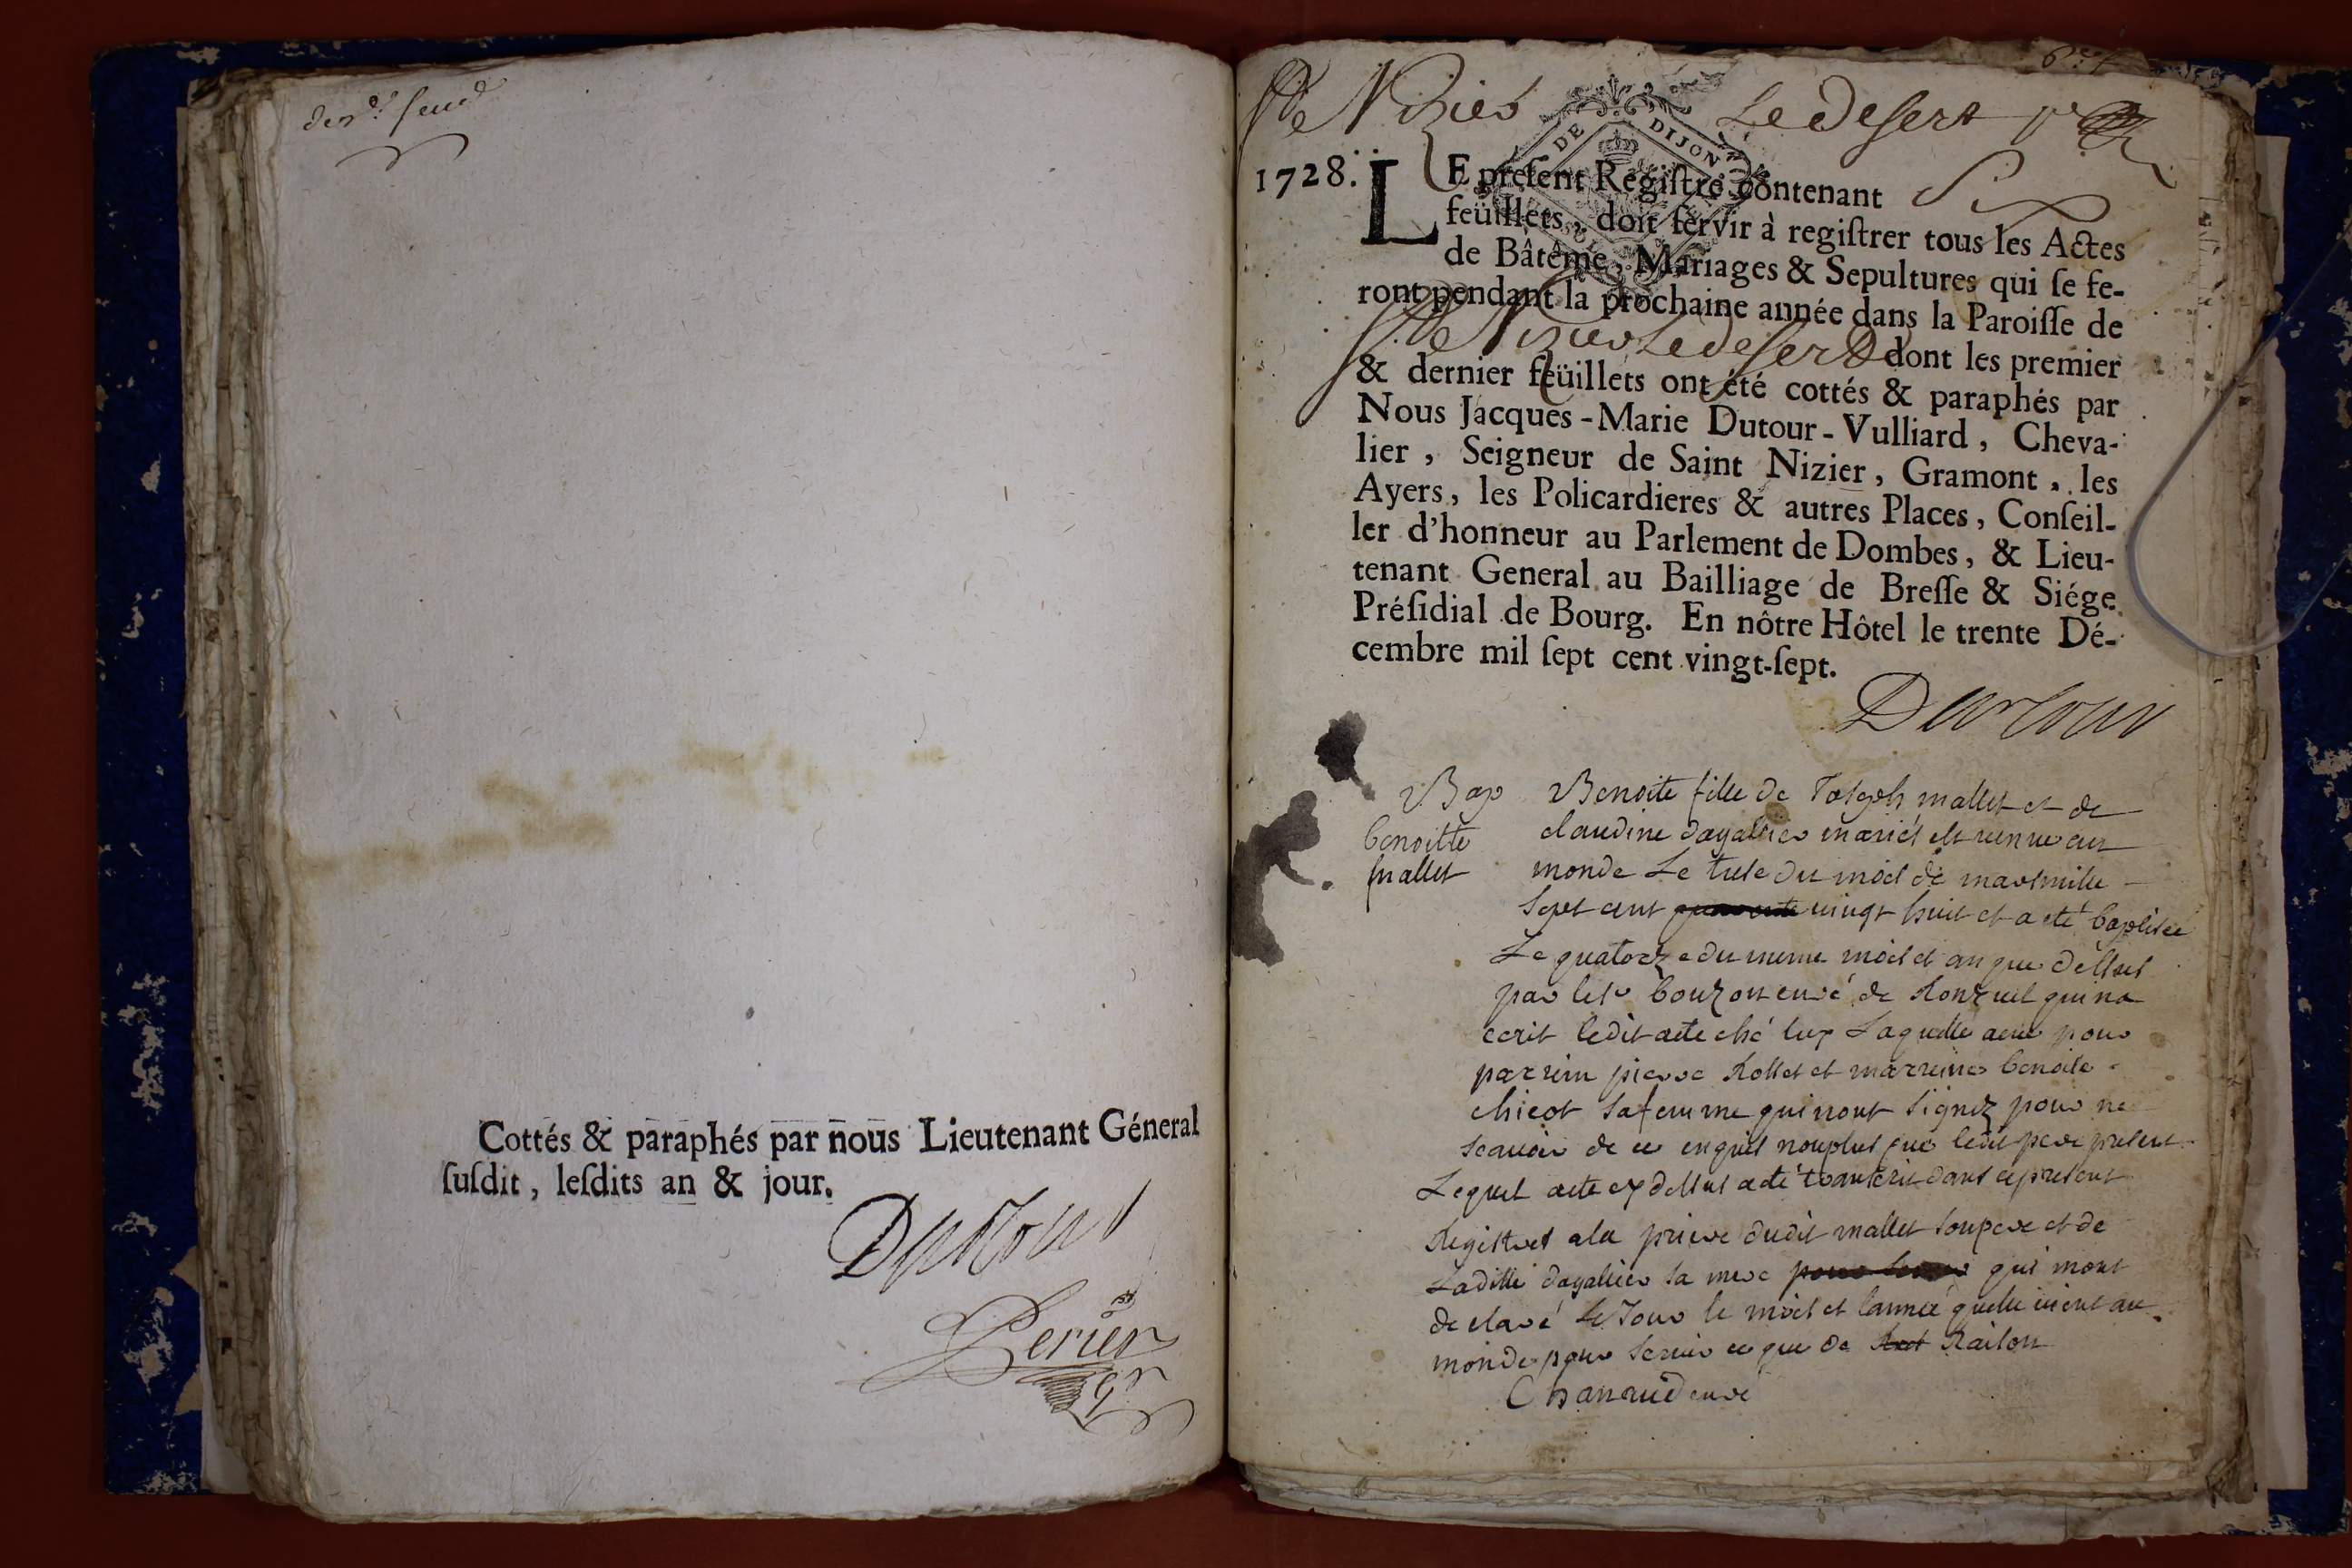 der.r feuil
Cottés & paraphés par nous Lieutenant Géneral
ſuſdit, leſdits an & jour.
Dutour
Perier
St Nizier Le Desert
DE DIJON
1728. LE preſent Regiſtre contenant Six
feüillets, doit ſervir à regiſtrer tous les Actes
de Bâtême, Mariages & Sepultures qui ſe fe-
ront pendant la prochaine année dans la Paroiſſe de
St Nizier Le Desert dont les premier
& dernier feüillets ont été cottés & paraphés par
Nous Jacques-Marie Dutour-Vulliard, Cheva-
lier, Seigneur de Saint Nizier, Gramont, les
Ayers, les Policardieres & autres Places, Conſeil-
ler d'honneur au Parlement de Dombes, & Lieu-
tenant General au Bailliage de Breſſe & Siége
Préſidial de Bourg. En nôtre Hôtel le trente Dé-
cembre mil ſept cent vingt-ſept.
Dutour
Bap
benoitte
mallet
Benoite fille de Joseph mallet et de
claudine dagallier mariés est venue au
monde Le trese du mois de mars mille
sept cent vingt huit et a eté baptisée
Le quatorze du meme mois et an que dessus
par le sr bouzon curé de Ronzuel qui na
ecrit ledit acte ché luy Laquelle a eue pour
parrein pierre Rollet et marreine benoite
chicot sa femme qui nont signez pour ne
scavoir de ce enquis nonplus que ledit pere present
Lequel acte cy dessus a eté transcrit dans ce present
Registres a la priere dudit mallet son pere et de
Laditte dagallier sa mere qui mont
declaré Le Jour le mois et lannée quelle vient au
monde pour servir ce que de Raison
Chanaud curé